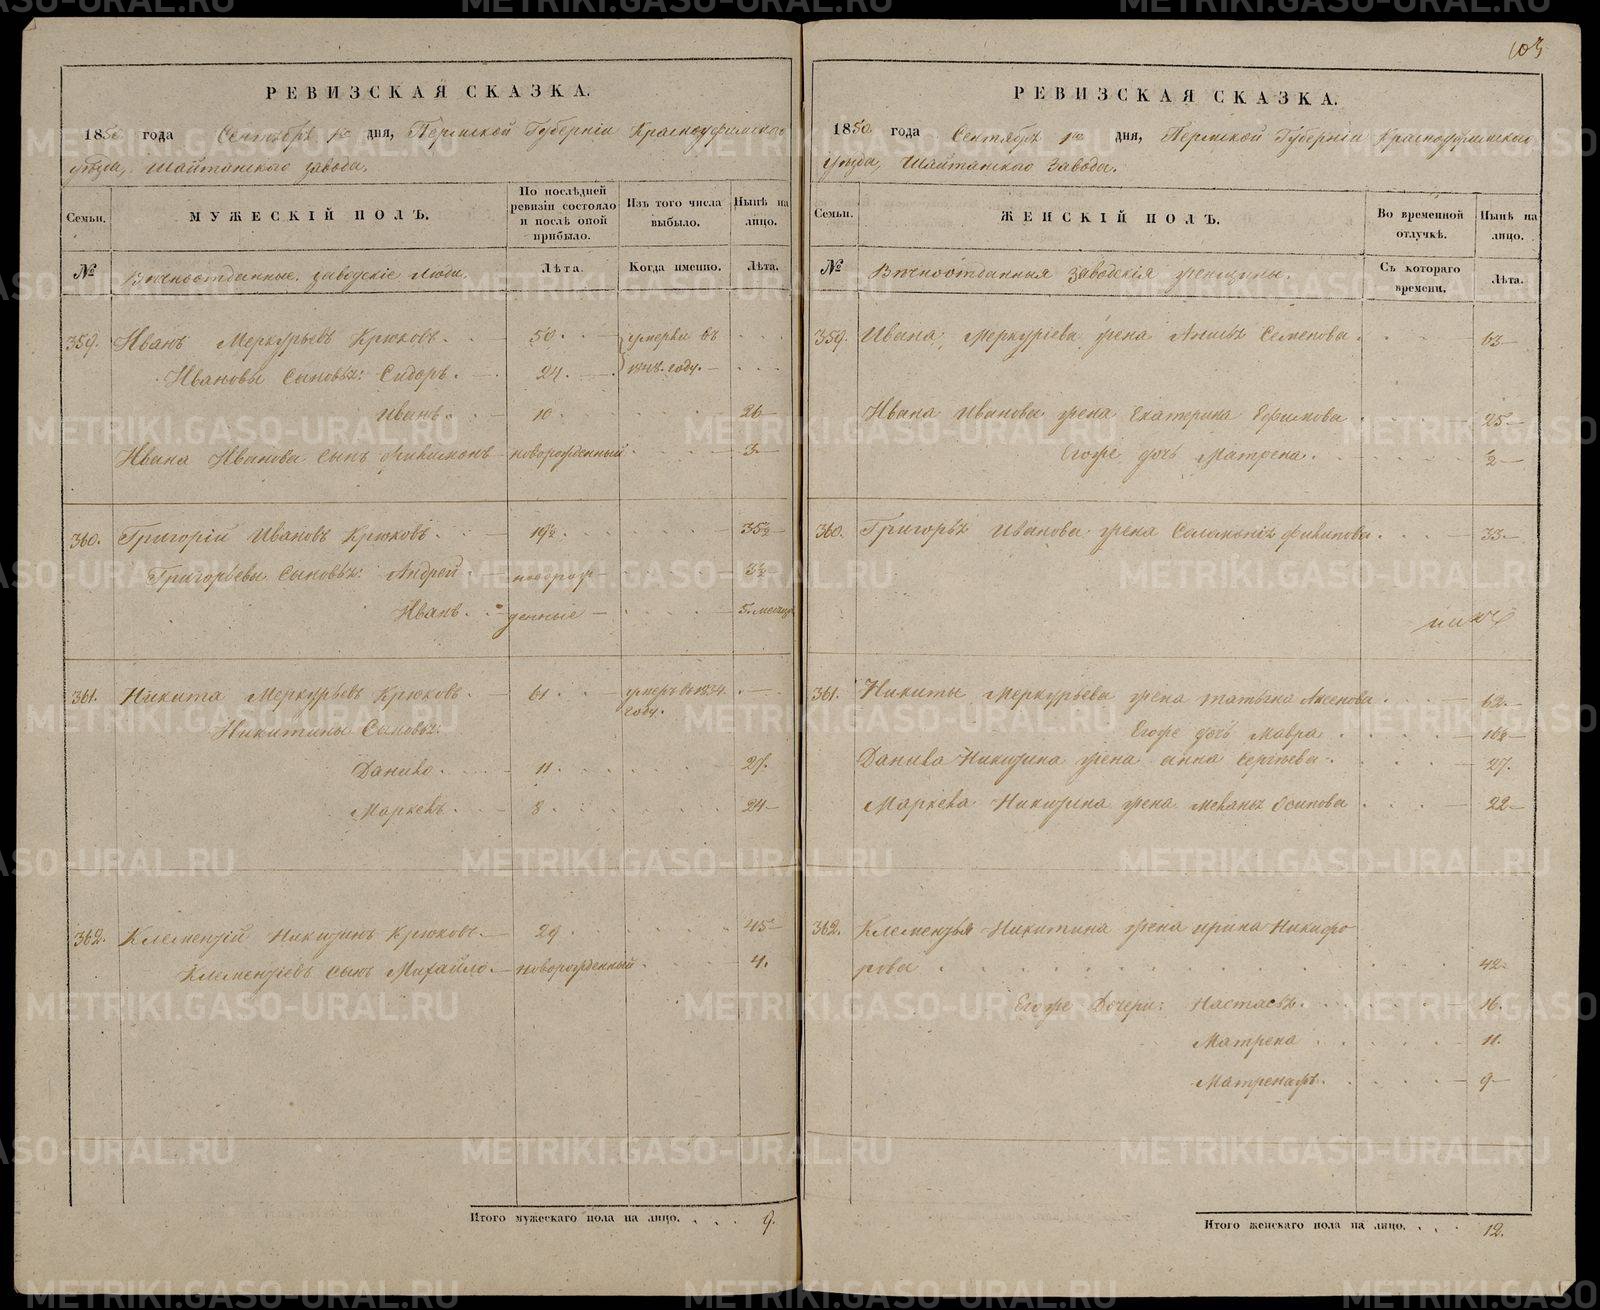 103
РЕВИЗСКАЯ СКАЗКА.
1850 года Сентября 1го дня, Пермской Губерніи Красноуфимскаго
уѣзда, Шайтанскаго завода.
Семьи.
МУЖЕСКІЙ ПОЛЪ.
По послѣдней ревизіи состояло и послѣ оной прибыло.
Изъ того числа выбыло.
Нынѣ на лицо.
№
Вѣчноотданные заводскіе люди.
Лѣта.
Когда именно.
Лѣта.
359. Иванъ Меркурьевъ Крюковъ. 50. умерли въ
Ивановы Сыновья: Сидоръ. 24. 1848. году.
Иванъ. 10. 26
Ивана Иванова Сынъ Филимонъ новорожденный 3
360. Григорій Ивановъ Крюковъ. 19½ 35½
Григорьевы Сыновья: Андрей новорож 3½
Иванъ. денные 5. месяцъ
361. Никита Меркурьевъ Крюковъ. 61 умеръ въ 1834.
году.
Никитины Сыновья:
Данило. 11. 27.
Маркелъ. 8. 24
362. Клементій Никитинъ Крюковъ. 29. 45
Клементіевъ сынъ Михайло. новорожденный 4.
Итого мужескаго пола на лицо. 9.
РЕВИЗСКАЯ СКАЗКА.
1850 года Сентября 1го дня, Пермской Губерніи Красноуфимскаго
уѣзда, Шайтанскаго Завода.
Семьи.
ЖЕНСКІЙ ПОЛЪ.
Во временной отлучкѣ.
Нынѣ на лицо.
№
Вѣчноотданныя Заводскія женщины.
Съ котораго времени.
Лѣта.
359. Ивана Меркуріева жена Анна Семенова. 63
Ивана Иванова жена Екатерина Ефимова 25
Егоже дочь Матрена. ½
360. Григорья Иванова жена Соломонія Филипова. 33
361. Никиты Меркурьева жена Татьяна Аксенова 62
Егоже дочь Мавра 16½
Данила Никитина жена Анна Сергѣева. 27.
Маркела Никитина жена Меланья Осипова 22
362. Клементья Никитина жена Ирина Никифо
рова 42
Егоже Дочери: Настасья. 16.
Матрена 11.
9
Итого женскаго пола на лицо. 12.
METRIKI.GASO-URAL.RU